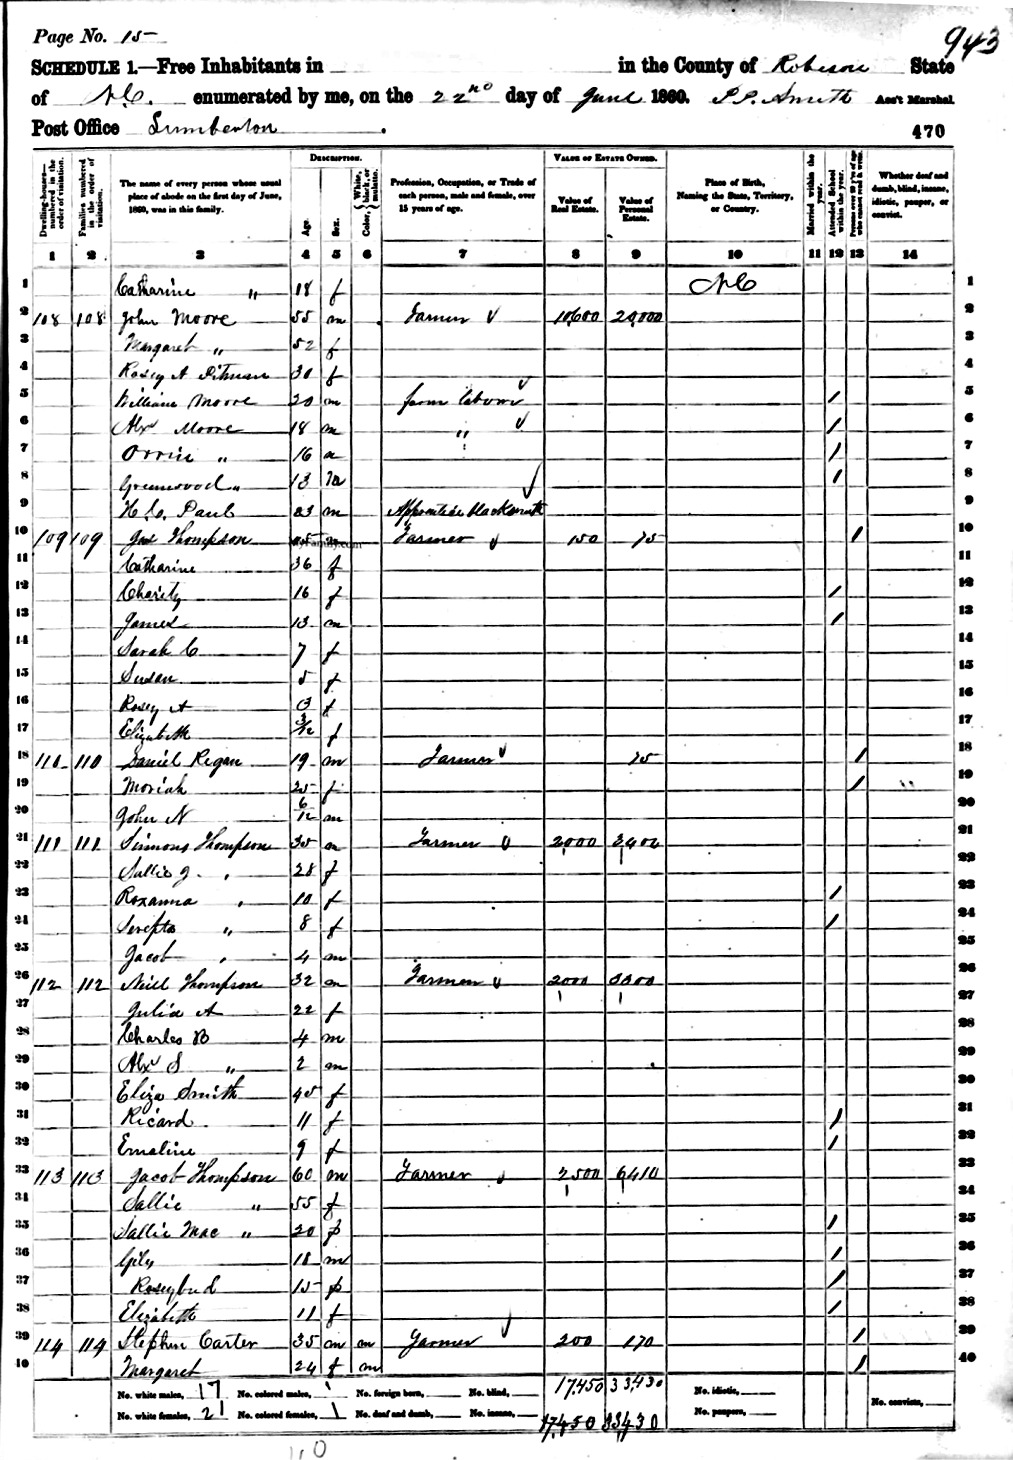 Page No. 15
943
SCHEDULE 1.—Free Inhabitants in in the County of Robeson State
of N.C. enumerated by me, on the 22nd day of June 1860. Ass't Marshal.
Post Office Lumberton . 470
DESCRIPTION. VALUE OF ESTATE OWNED.
Dwelling-houses—numbered in the order of visitation. Families numbered in the order of visitation. The name of every person whose usual place of abode on the first day of June, 1860, was in this family. Age. Sex. Color, White, black, or mulatto. Profession, Occupation, or Trade of each person, male and female, over 15 years of age. Value of Real Estate. Value of Personal Estate. Place of Birth, Naming the State, Territory, or Country. Married within the year. Attended School within the year. Persons over 20 y'rs of age who cannot read & write. Whether deaf and dumb, blind, insane, idiotic, pauper, or convict.
1 2 3 4 5 6 7 8 9 10 11 12 13 14
1 Catharine " 18 f NC 1
2 108 108 John Moore 55 m Farmer 10,600 20,000 2
3 Margaret " 52 f 3
4 Rosey A Pitman 30 f 4
5 William Moore 20 m farm labour / 5
6 Alx Moore 18 m " / 6
7 Orrin " 16 m / 7
8 Greenwood " 13 m / 8
9 Paul 23 m Apprentice blacksmith 9
10 109 109 Jas Thompson m Farmer 150 75 / 10
11 Catharine 36 f 11
12 Charity 16 f / 12
13 James 13 m / 13
14 Sarah C 7 f 14
15 Susan 5 f 15
16 Rosey A 3 f 16
17 Elizabeth 3/12 f 17
18 110 110 Daniel Regan 19 m Farmer 75 / 18
19 Moriah 25 f / 19
20 John N 6/12 m 20
21 111 111 Simmons Thompson 35 m Farmer 2000 3400 21
22 Sallie J. " 28 f 22
23 Roxanna " 10 f / 23
24 Serepta " 8 f / 24
25 Jacob " 4 m 25
26 112 112 Neill Thompson 32 m Farmer 2000 3300 26
27 Julia A 22 f 27
28 Charles B 4 m 28
29 Alx S " 2 m 29
30 Eliza Smith 45 f 30
31 Ricard 11 f / 31
32 Emaline 9 f / 32
33 113 113 Jacob Thompson 60 m Farmer 2500 6410 33
34 Sallie " 55 f 34
35 Sallie Mac " 20 f / 35
36 18 m / 36
37 Roseybud 15 f / 37
38 Elizabeth 11 f / 38
39 114 114 Stephen Carter 35 m m Farmer 200 170 / 39
40 Margaret 24 f m / 40
No. white males, 17 No. colored males, 1 No. foreign born, No. blind, 17,450 33,430 No. idiotic, No. convicts,
No. white females, 21 No. colored females, 1 No. deaf and dumb, No. insane, 17,450 33,430 No. paupers,
110